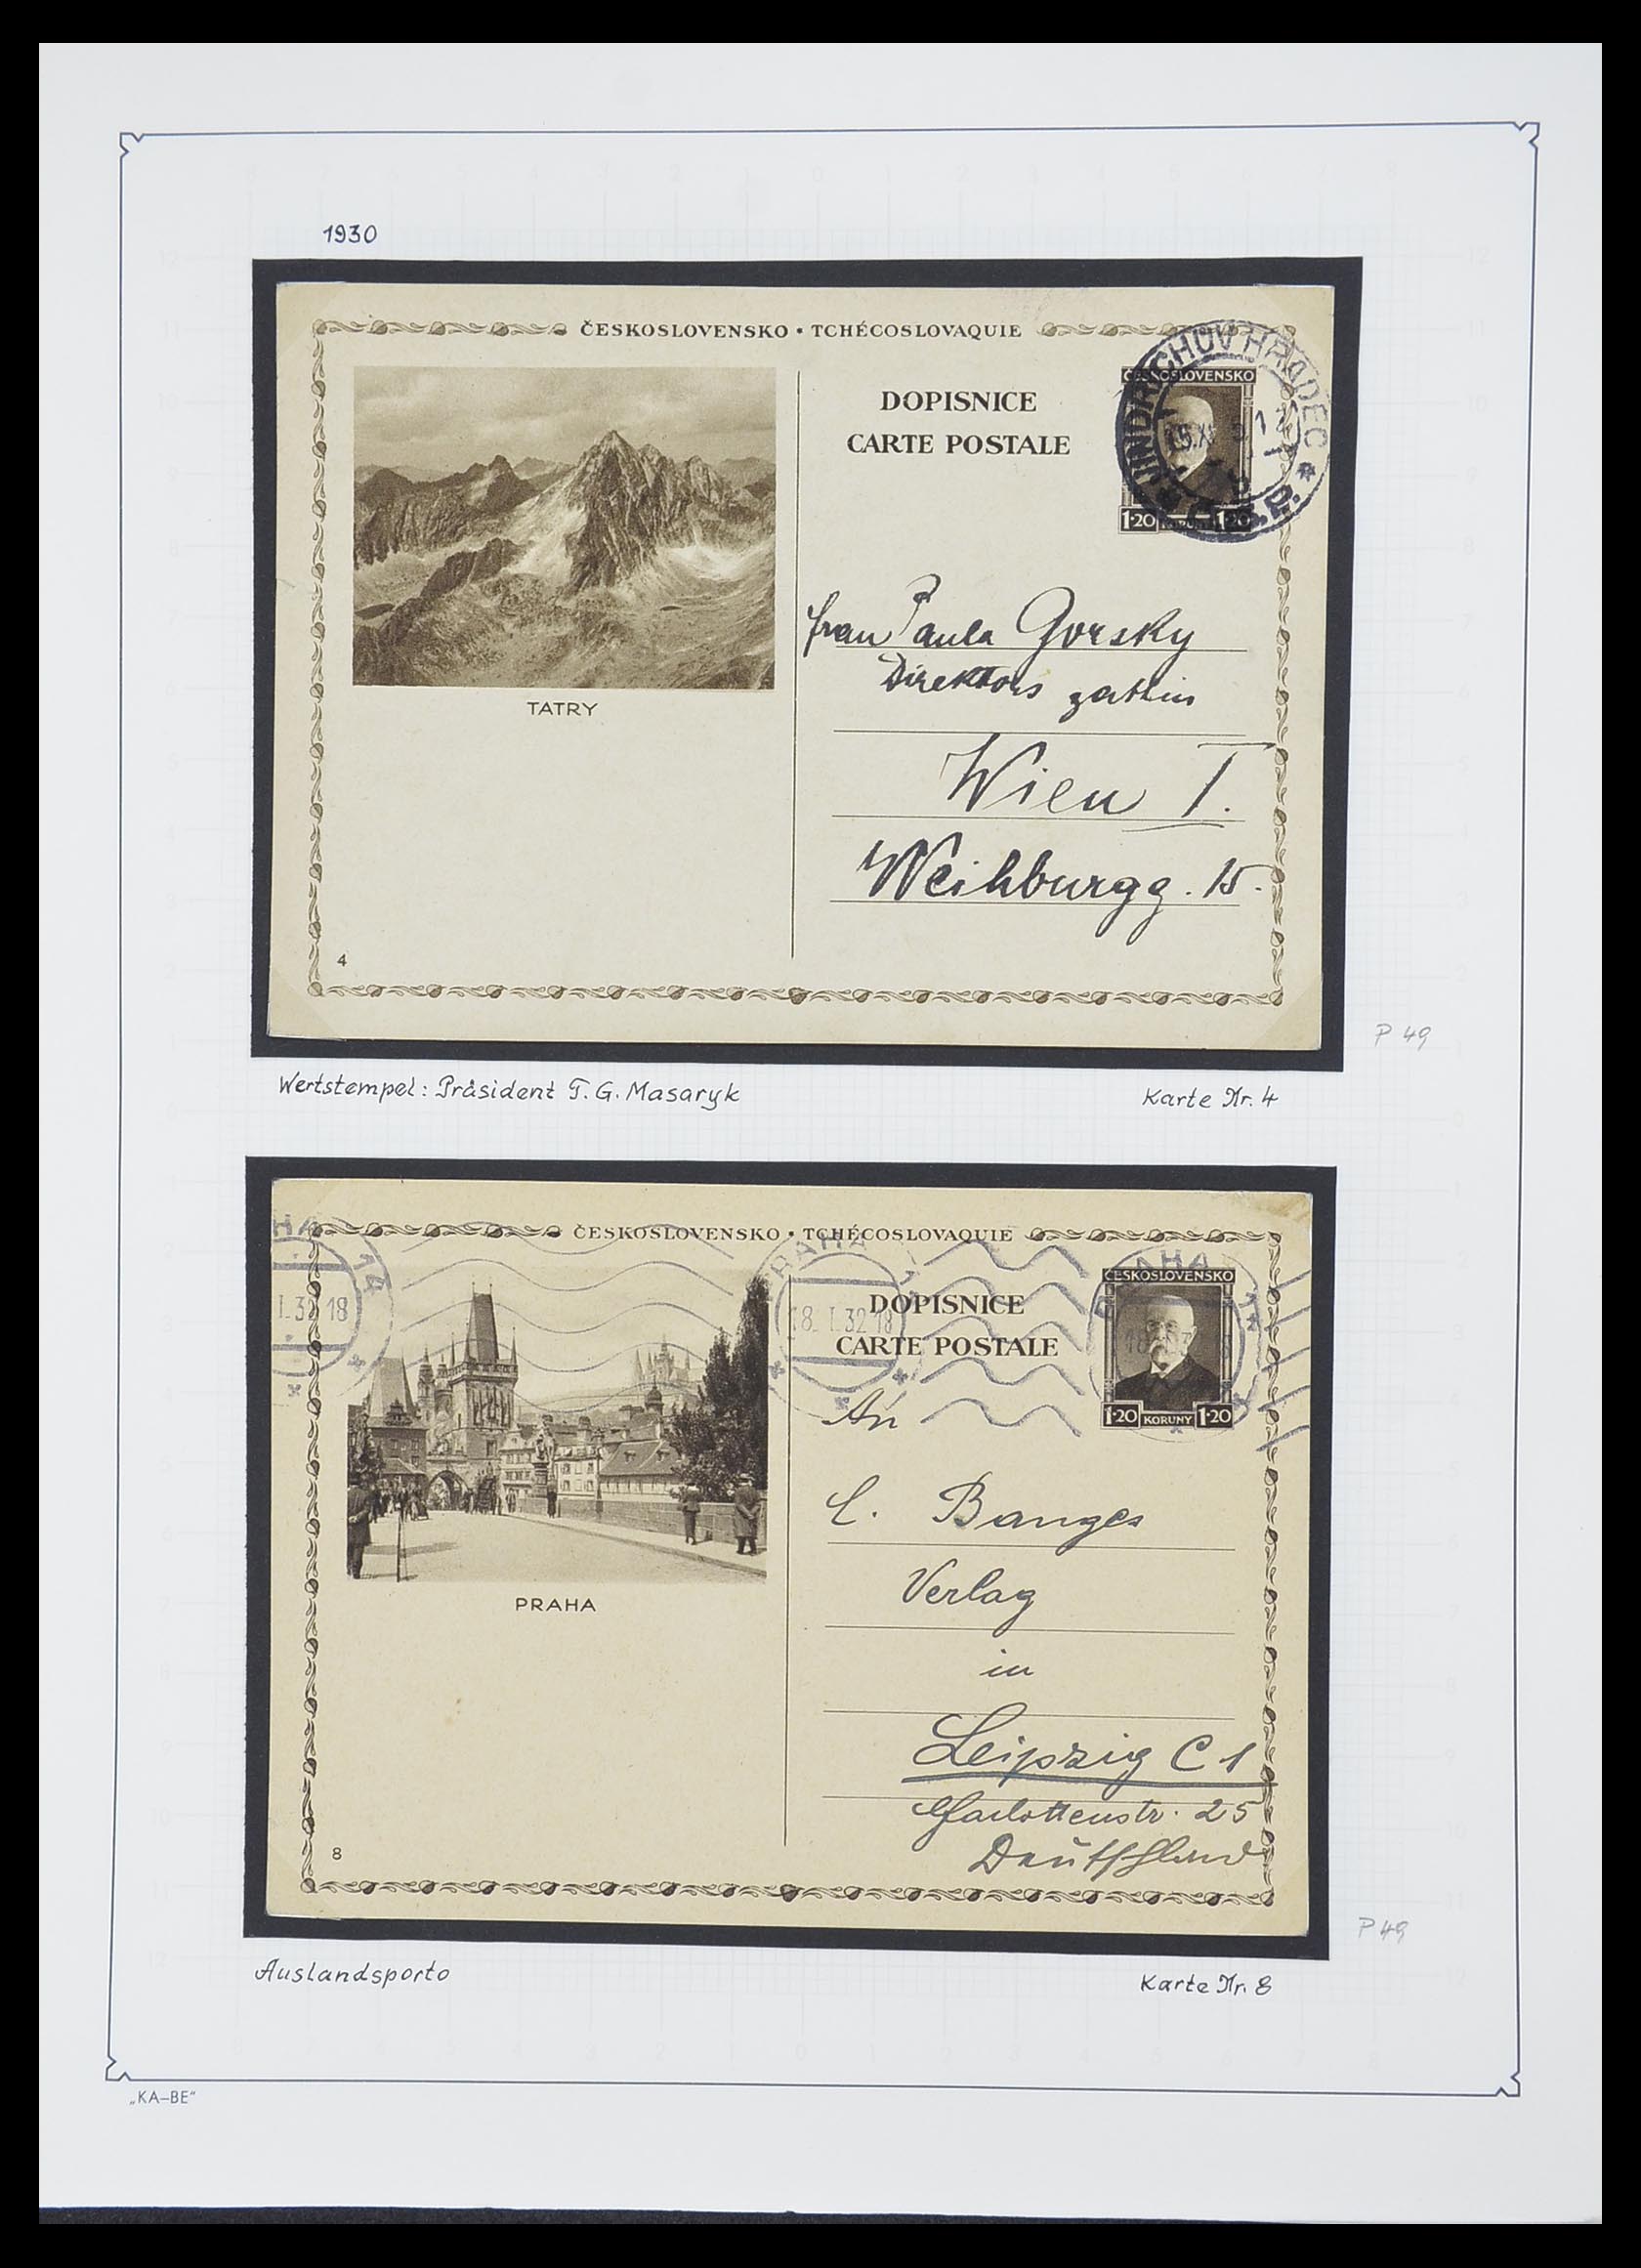 1930
ČESKOSLOVENSKO • TCHÉCOSLOVAQUIE
DOPISNICE
CARTE POSTALE
ČESKOSLOVENSKO
1·20 KORUNY 1·20
JINDŘICHŮV HRADEC
TATRY
Frau Paula Gorsky
Direktors gattin
Wien I.
Weihburgg. 15.
4
P 49
Wertstempel: Präsident T. G. Masaryk
Karte Nr. 4
ČESKOSLOVENSKO • TCHÉCOSLOVAQUIE
PRAHA
18. I. 32 18
DOPISNICE
CARTE POSTALE
ČESKOSLOVENSKO
1·20 KORUNY 1·20
PRAHA
An
C. Banges
Verlag
in
Leipzig C 1
Charlottenstr. 25
Deutschland
8
P 49
Auslandsporto
Karte Nr. 8
„KA–BE“